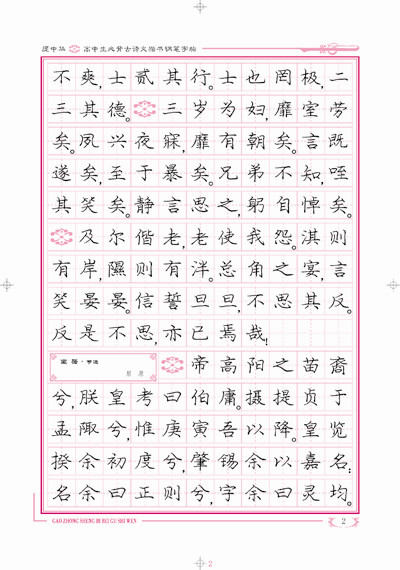 庞中华 高中生必背古诗文楷书钢笔字帖
不爽,士贰其行。士也罔极,二
三其德。三岁为妇,靡室劳
矣。夙兴夜寐,靡有朝矣。言既
遂矣,至于暴矣。兄弟不知,咥
其笑矣。静言思之,躬自悼矣。
及尔偕老,老使我怨。淇则
有岸,隰则有泮。总角之宴,言
笑晏晏。信誓旦旦,不思其反。
反是不思,亦已焉哉!
离骚·节选
屈原
帝高阳之苗裔
兮,朕皇考曰伯庸。摄提贞于
孟陬兮,惟庚寅吾以降。皇览
揆余初度兮,肇锡余以嘉名:
名余曰正则兮,字余曰灵均。
GAO ZHONG SHENG BI BEI GU SHI WEN
2
2